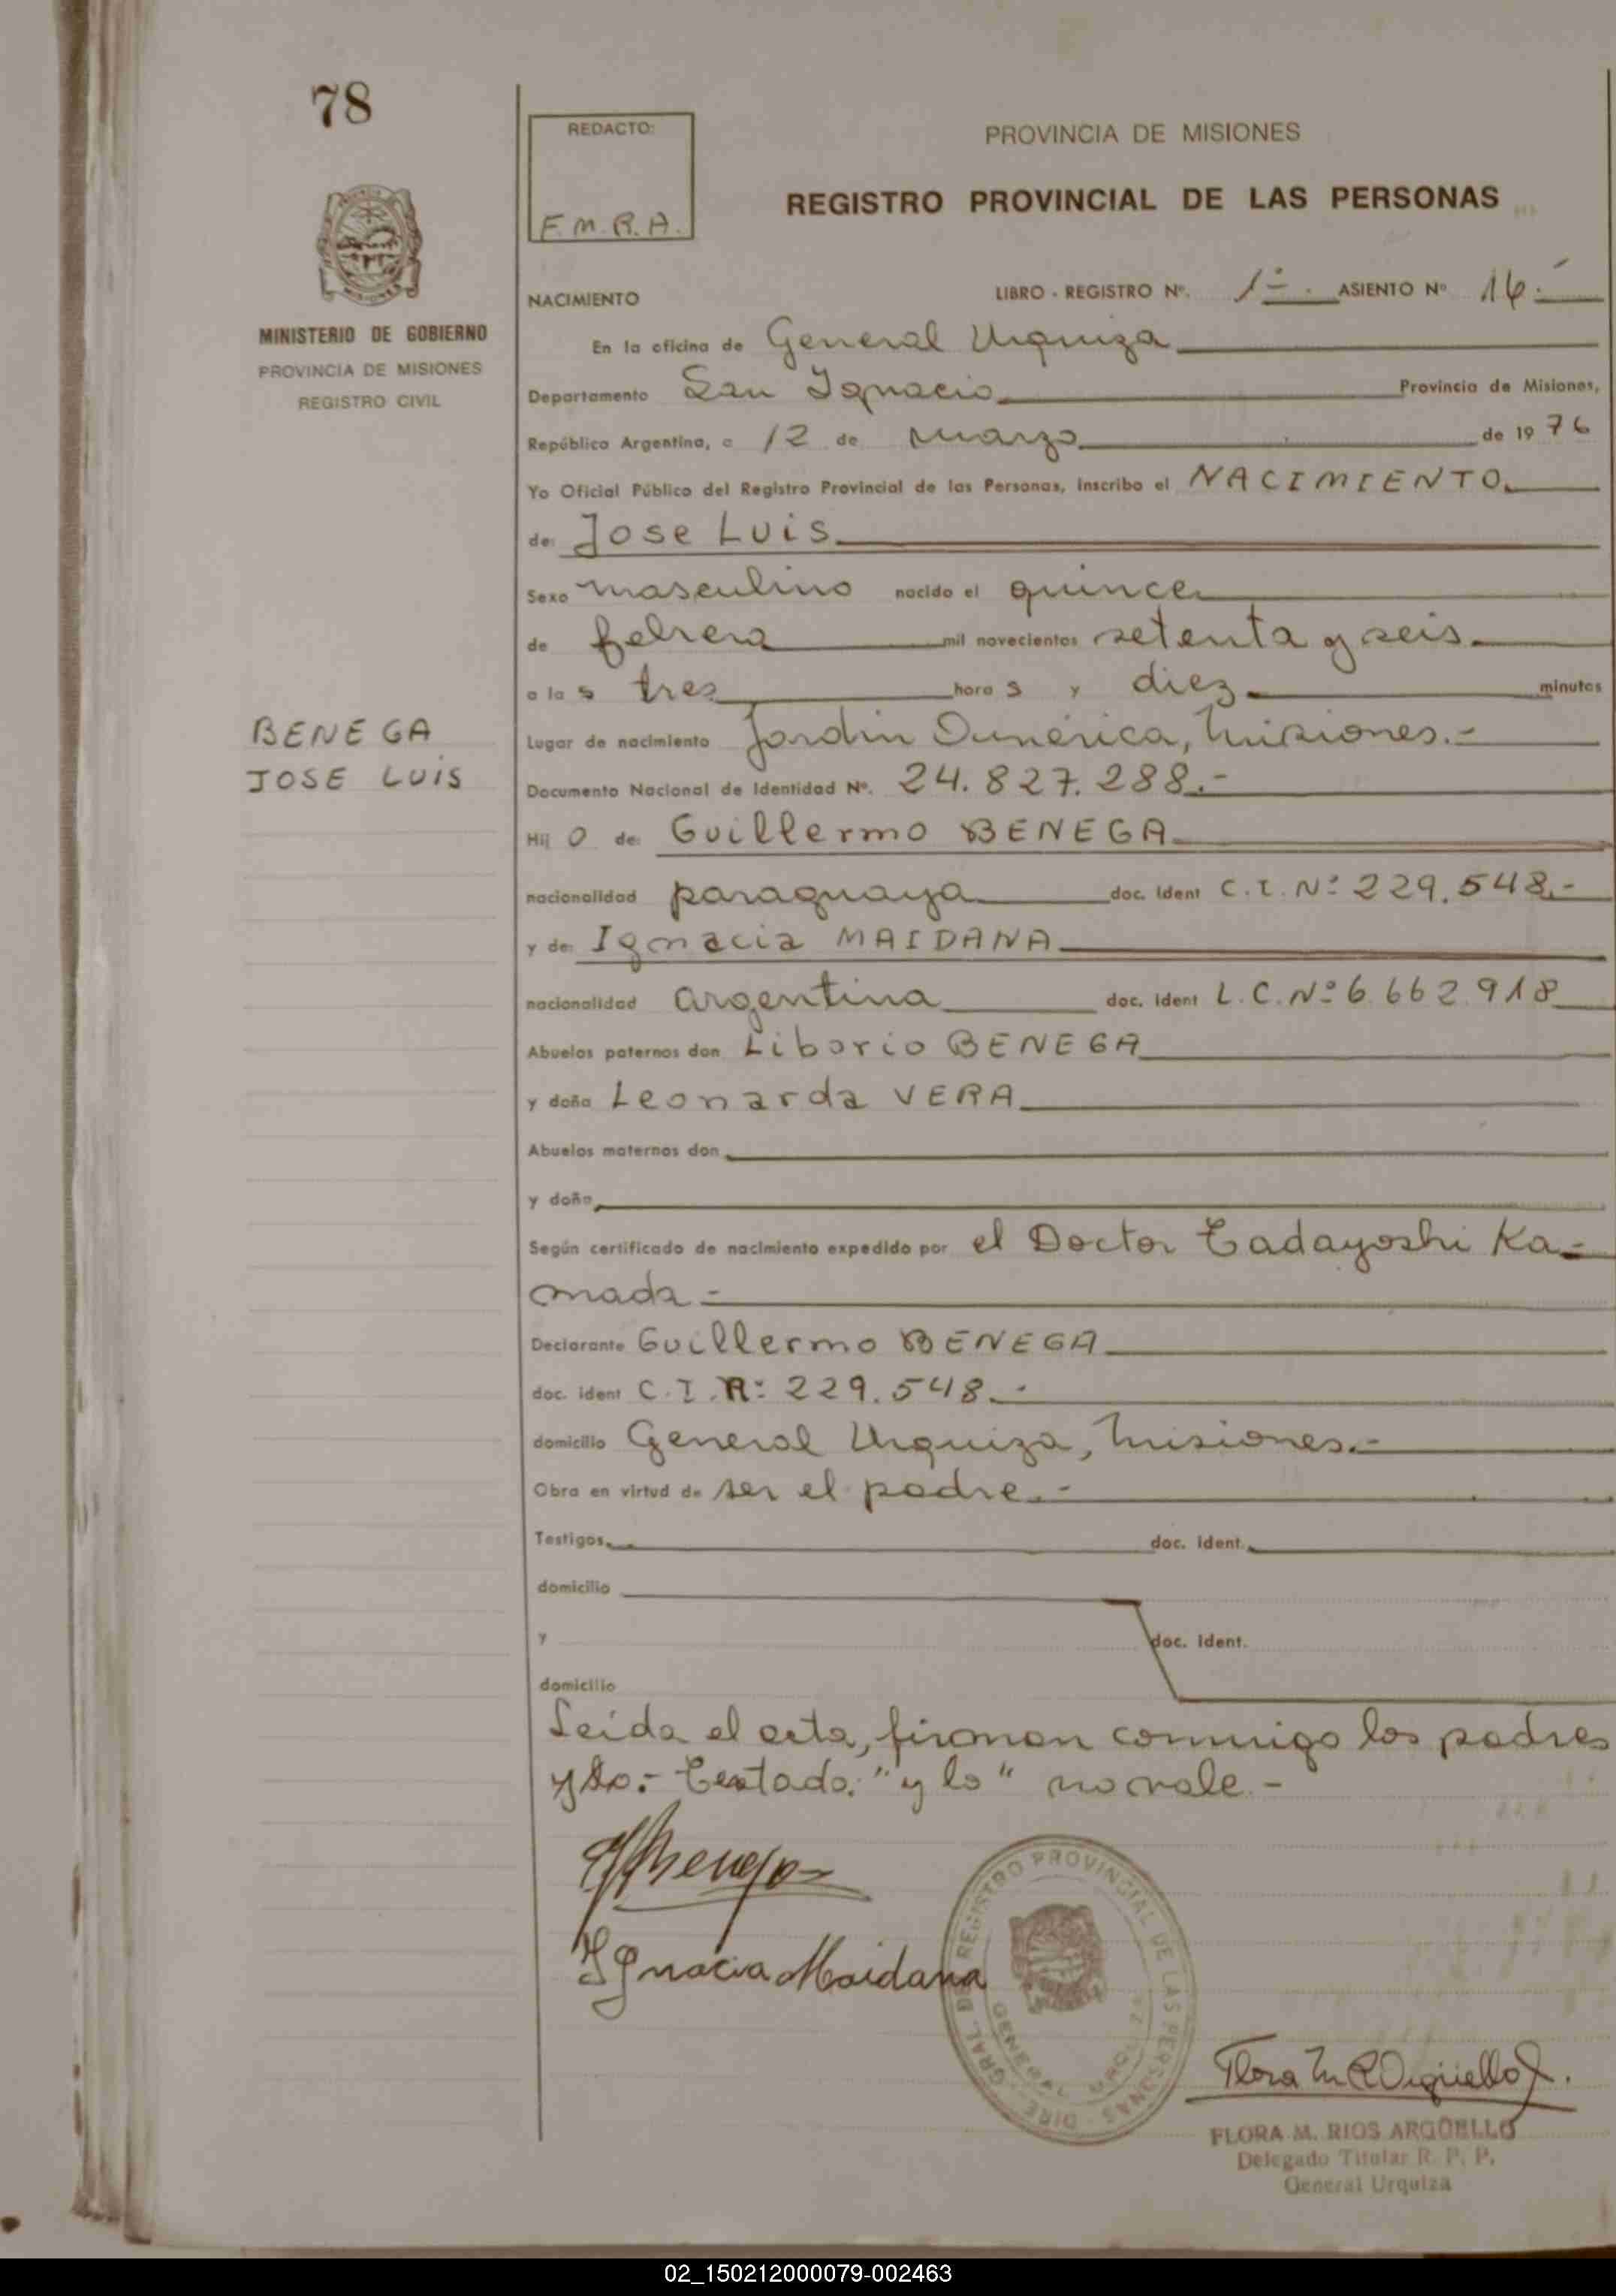 78
REDACTO:
F.M.R.A.
PROVINCIA DE MISIONES
REGISTRO PROVINCIAL DE LAS PERSONAS
MISIONES
MINISTERIO DE GOBIERNO
PROVINCIA DE MISIONES
REGISTRO CIVIL
NACIMIENTO LIBRO - REGISTRO Nº. 1º-. ASIENTO Nº 16.-
En la oficina de General Urquiza
Departamento San Ignacio Provincia de Misiones,
República Argentina, a 12 de marzo de 1976
Yo Oficial Público del Registro Provincial de las Personas, inscribo el NACIMIENTO
de: Jose Luis
Sexo masculino nacido el quince
de febrero mil novecientos setenta y seis
a las tres horas y diez minutos
BENEGA
JOSE LUIS
Lugar de nacimiento Jardin America, Misiones.-
Documento Nacional de Identidad Nº. 24.827.288.-
Hijo de: Guillermo BENEGA
nacionalidad paraguaya doc. ident C.I. Nº 229.548.-
y de: Ignacia MAIDANA
nacionalidad argentina doc. ident L.C. Nº 6.662.918
Abuelos paternos don Liborio BENEGA
y doña Leonarda VERA
Abuelos maternos don
y doña
Según certificado de nacimiento expedido por el Doctor Tadayoshi Ka-
mada.-
Declarante Guillermo BENEGA
doc. ident C.I. Nº 229.548.-
domicilio General Urquiza, Misiones.-
Obra en virtud de ser el padre.-
Testigos doc. ident.
domicilio
y doc. ident.
domicilio
Leida el acta, firman conmigo los padres
y lo.- Testado: "y lo" no vale.-
Benega
Ignacia Maidana
DIRE. GRAL. DE REGISTRO PROVINCIAL DE LAS PERSONAS
GENERAL URQUIZA
Flora M R Argüello
FLORA M. RIOS ARGÜELLO
Delegado Titular R. P. P.
General Urquiza
02_150212000079-002463